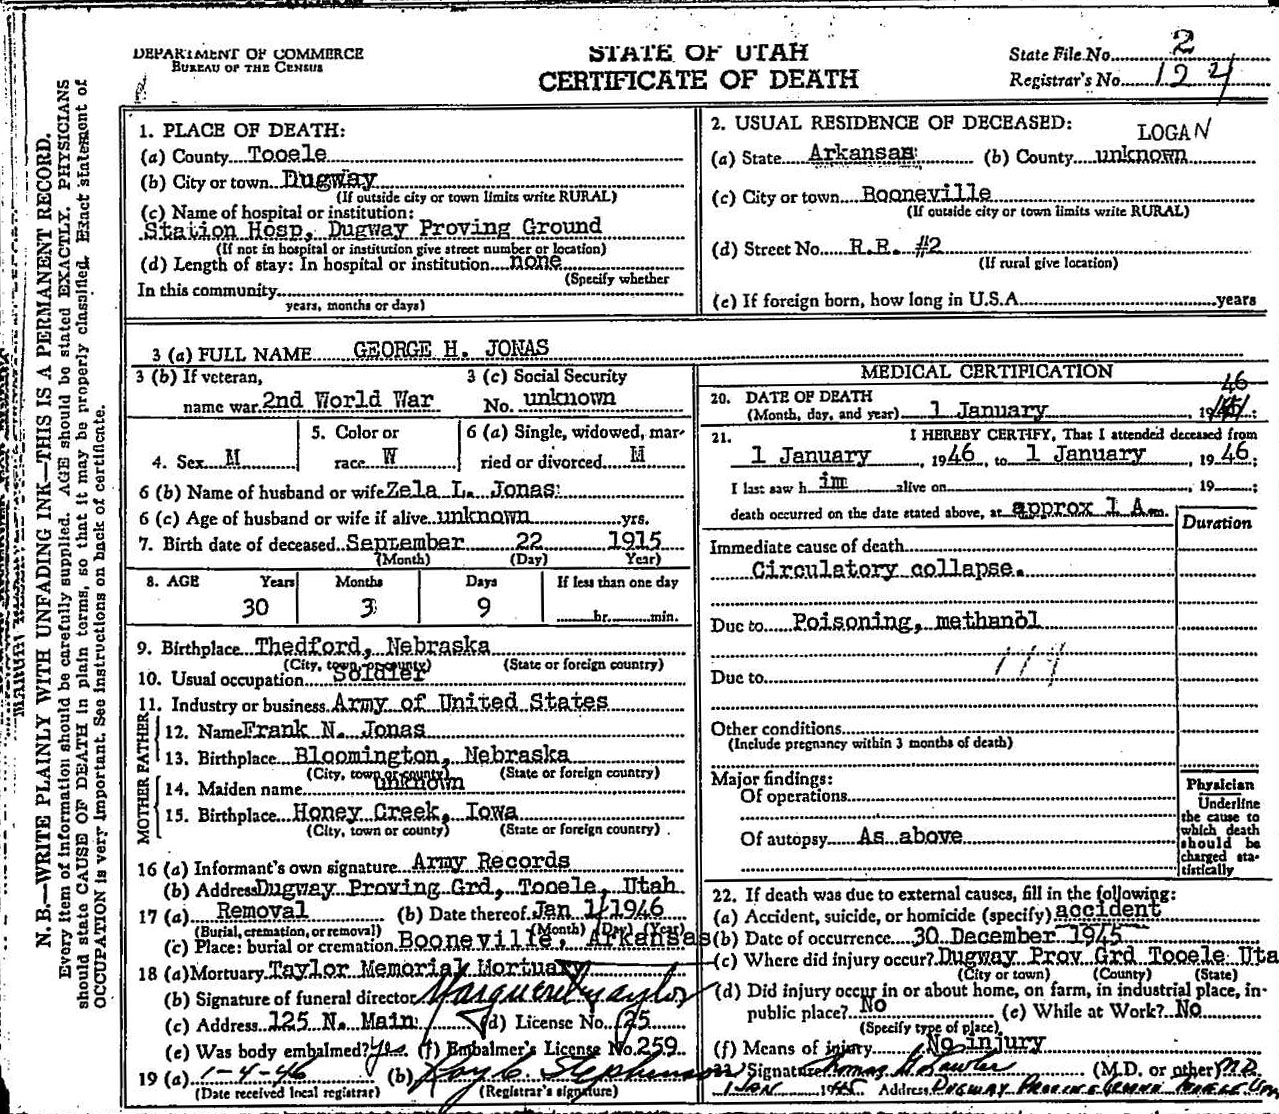 DEPARTMENT OF COMMERCE
BUREAU OF THE CENSUS
STATE OF UTAH
CERTIFICATE OF DEATH
State File No. 2
Registrar's No. 124
N. B.—WRITE PLAINLY WITH UNFADING INK—THIS IS A PERMANENT RECORD.
Every item of information should be carefully supplied. AGE should be stated EXACTLY. PHYSICIANS
should state CAUSE OF DEATH in plain terms, so that it may be properly classified. Exact statement of
OCCUPATION is very important. See instructions on back of certificate.
1. PLACE OF DEATH:
(a) County Tooele
(b) City or town Dugway
(If outside city or town limits write RURAL)
(c) Name of hospital or institution:
Station Hosp, Dugway Proving Ground
(If not in hospital or institution give street number or location)
(d) Length of stay: In hospital or institution none
(Specify whether
In this community
years, months or days)
2. USUAL RESIDENCE OF DECEASED:
LOGAN
(a) State Arkansas (b) County unknown
(c) City or town Booneville
(If outside city or town limits write RURAL)
(d) Street No. R.R. #2
(If rural give location)
(e) If foreign born, how long in U.S.A. years
3 (a) FULL NAME GEORGE H. JONAS
3 (b) If veteran,
name war 2nd World War
3 (c) Social Security
No. unknown
4. Sex M
5. Color or
race W
6 (a) Single, widowed, mar-
ried or divorced M
6 (b) Name of husband or wife Zela L. Jonas
6 (c) Age of husband or wife if alive unknown yrs.
7. Birth date of deceased September 22 1915
(Month) (Day) Year)
8. AGE Years Months Days If less than one day
30 3 9 hr. min.
9. Birthplace Thedford, Nebraska
(City, town or county) (State or foreign country)
10. Usual occupation Soldier
11. Industry or business Army of United States
FATHER
12. Name Frank N. Jonas
13. Birthplace Bloomington, Nebraska
(City, town or county) (State or foreign country)
MOTHER
14. Maiden name unknown
15. Birthplace Honey Creek, Iowa
(City, town or county) (State or foreign country)
16 (a) Informant's own signature Army Records
(b) Address Dugway Proving Grd, Tooele, Utah
17 (a) Removal (b) Date thereof Jan 1/1946
(Burial, cremation, or removal) (Month) (Day) (Year)
(c) Place: burial or cremation Booneville, Arkansas
18 (a) Mortuary Taylor Memorial Mortuary
(b) Signature of funeral director Marguerite Taylor
(c) Address 125 N. Main (d) License No. 125
(e) Was body embalmed? Yes (f) Embalmer's License No. 259
19 (a) 1-4-46 (b) Ray C. Stephenson
(Date received local registrar) (Registrar's signature)
MEDICAL CERTIFICATION
46
20. DATE OF DEATH
(Month, day, and year) 1 January, 19
21. I HEREBY CERTIFY, That I attended deceased from
1 January, 1946, to 1 January, 1946;
I last saw h im alive on , 19 ;
death occurred on the date stated above, at approx 1 A m.
Duration
Immediate cause of death
Circulatory collapse.
Due to Poisoning, methanol
Due to
Other conditions
(Include pregnancy within 3 months of death)
Major findings:
Of operations
Of autopsy As above
Physician
Underline
the cause to
which death
should be
charged sta-
tistically
22. If death was due to external causes, fill in the following:
(a) Accident, suicide, or homicide (specify) accident
(b) Date of occurrence 30 December 1945
(c) Where did injury occur? Dugway Prov Grd Tooele Uta
(City or town) (County) (State)
(d) Did injury occur in or about home, on farm, in industrial place, in
public place? No (e) While at Work? No
(Specify type of place)
(f) Means of injury No injury
Signature Thomas Lawler (M.D. or other) M.D.
1 JAN 1945 Address DUGWAY PROVING GROUND TOOELE